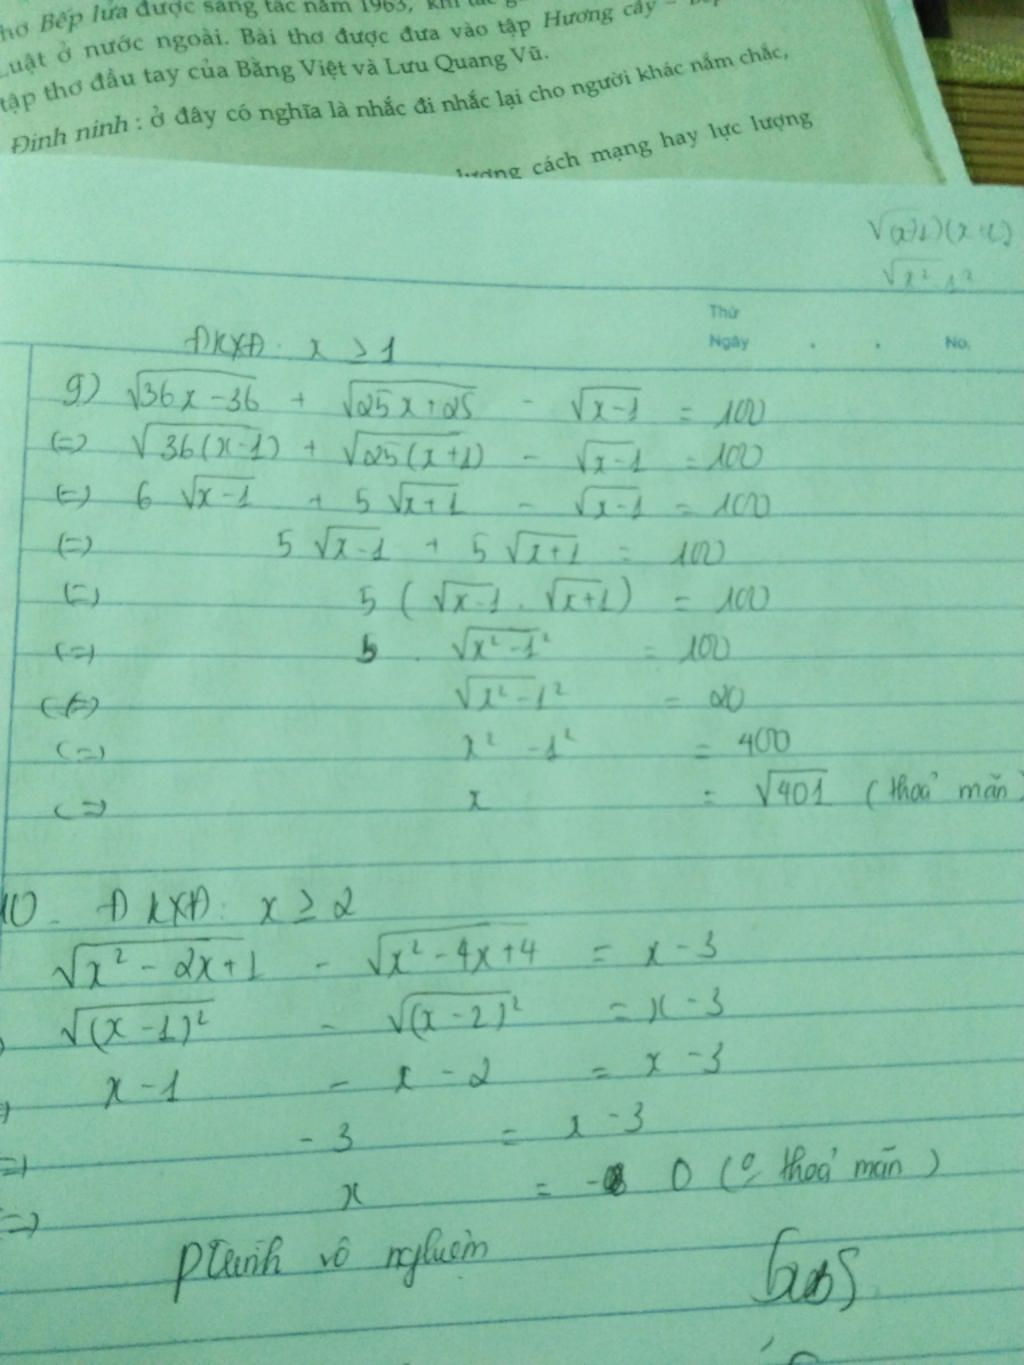 hơ Bếp lửa được sáng tác năm 1963,
Luật ở nước ngoài. Bài thơ được đưa vào tập Hương cây –
tập thơ đầu tay của Bằng Việt và Lưu Quang Vũ.
Đinh ninh : ở đây có nghĩa là nhắc đi nhắc lại cho người khác nắm chắc,
lượng cách mạng hay lực lượng
√x² 1²
Thứ
Ngày . . No.
ĐKXĐ: x ≥ 1
9) √36x-36 + √25x+25 - √x-1 = 100
(=) √36(x-1) + √25(x+1) - √x-1 = 100
(=) 6 √x-1 + 5 √x+1 - √x-1 = 100
(=) 5 √x-1 + 5 √x+1 = 100
(=) 5 (√x-1 . √x+1) = 100
(=) 5 . √x²-1² = 100
(=) √x²-1² = 20
(=) x² -1² = 400
(=) x = √401 (thoả mãn)
10. ĐKXĐ: x ≥ 2
√x² - 2x+1 - √x² - 4x+4 = x-3
√(x-1)² - √(x-2)² = x-3
x-1 - x-2 = x-3
-3 = x-3
(=) x = 0 (o thoả mãn)
vô nghiệm